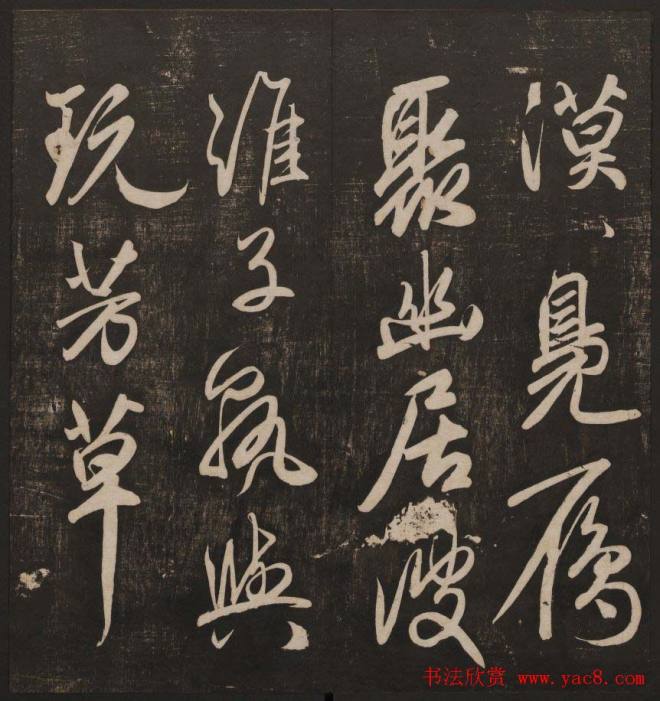 漠、見雁
聚幽居
淮子孰與
玩芳草
书法欣赏 www.yac8.com